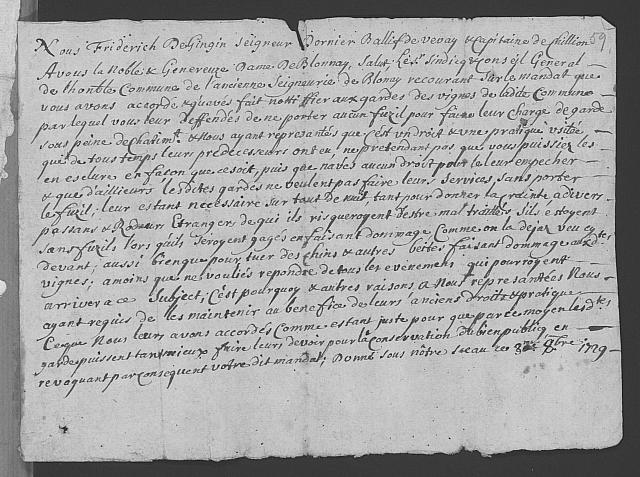 59
Nous Friderich De Gingin Seigneur Dornier Ballif de Vevay & Capitaine de Chillion
A vous la Noble & Genereuze Dame De Blonnay, Salut, Les Sindicq & conseil General
de lhonble Commune de l'ancienne Seigneurie de Blonay recourant sur le mandat que
vous avons accordé & qu'avés fait nottiffier aux gardes des vignes de ladite Commune
par lequel vous leur deffendés de ne porter aucun fuzil pour faire leur charge de garde
sous peine de chatimt. & Nous ayant representés que c'est un droit & une pratique usitée
que de tous temps leurs predecesseurs ont eu, ne pretendant pas que vous puissiez les
en esclure en facon que ce soit, puis que n'avés aucun droit pour le leur empecher
& que d'ailleurs lesdites gardes ne veulent pas faire leurs services sans porter
le fuzil; leur estant necessaire sur tout de nuit tant pour donner la crainte a divers
passans & Rodeurs Etrangers, de qui ils risqueroyent destre mal traittés s'ils estoyent
sans fuzils lors quils seroyent gagés en faisant dommage Comme on la deja veu cy
devant; aussi bien que pour tuer des chins & autres bettes faisant dommage auxdtes
vignes; amoins que ne vouliés repondre de tous les evenements qui pourroyent
arriver a ce Subject; C'est pourquoy & autres raisons a Nous representées Nous
ayant requis de les maintenir au benefice de leurs anciens Droits & pratique
Ce que Nous leurs avons accordés Comme estans juste pour que par ce moyen lesdtes
gardes puissent tant mieux faire leurs devoir pour la conservation du bien publiq en
revoquant par consequent votre dit mandat; Donné sous nôtre Sceau ce 8bre 1729